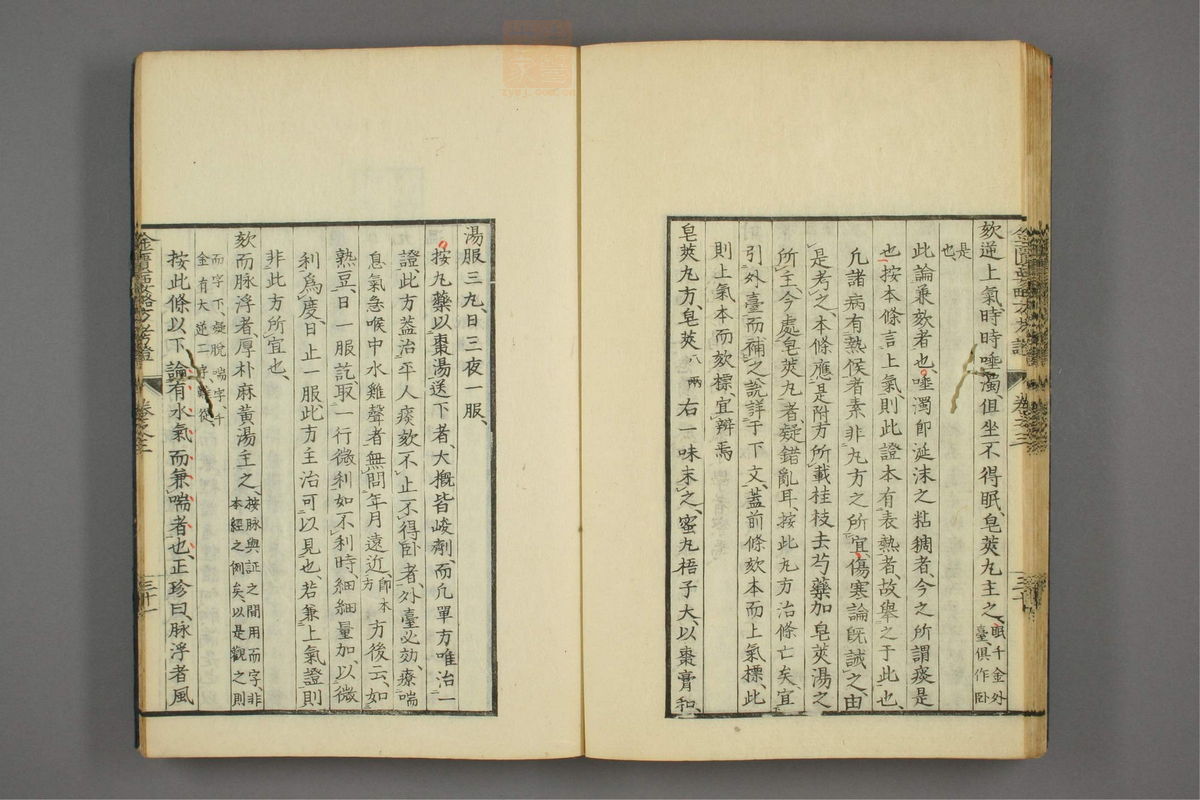 欬逆上氣時時唾濁但坐不得眠皂莢丸主之眠千金外臺俱作卧
是也
此論兼欬者也唾濁卽涎沫之粘稠者今之所謂痰是
也按本條言上氣則此證本有表熱者故舉之于此也
凡諸病有熱候者素非丸方之所宜傷寒論旣誡之由
是考之本條應是附方所載桂枝去芍藥加皂莢湯之
所主今處皂莢丸者疑錯亂耳按此丸方治條亡矣宜
引外臺而補之說詳于下文蓋前條欬本而上氣標此
則上氣本而欬標宜辨焉
皂莢丸方皂莢八兩右一味末之蜜丸梧子大以棗膏和
湯服三丸日三夜一服
按丸藥以棗湯送下者大槪皆峻劑而凡單方唯治一
證此方蓋治平人痰欬不止不得卧者外臺必効療喘
息氣急喉中水雞聲者無問年月遠近卽本方方後云如
熟豆日一服訖取一行微利如不利時細細量加以微
利爲度日止一服此方主治可以見也若兼上氣證則
非此方所宜也
欬而脉浮者厚朴麻黃湯主之按脉與証之間用而字非本經之例矣以是觀之則
而字下疑脫喘字千金有大逆二字難從
按此條以下論有水氣而兼喘者也正珍曰脉浮者風
金匱要略方考證
卷之三
三十一